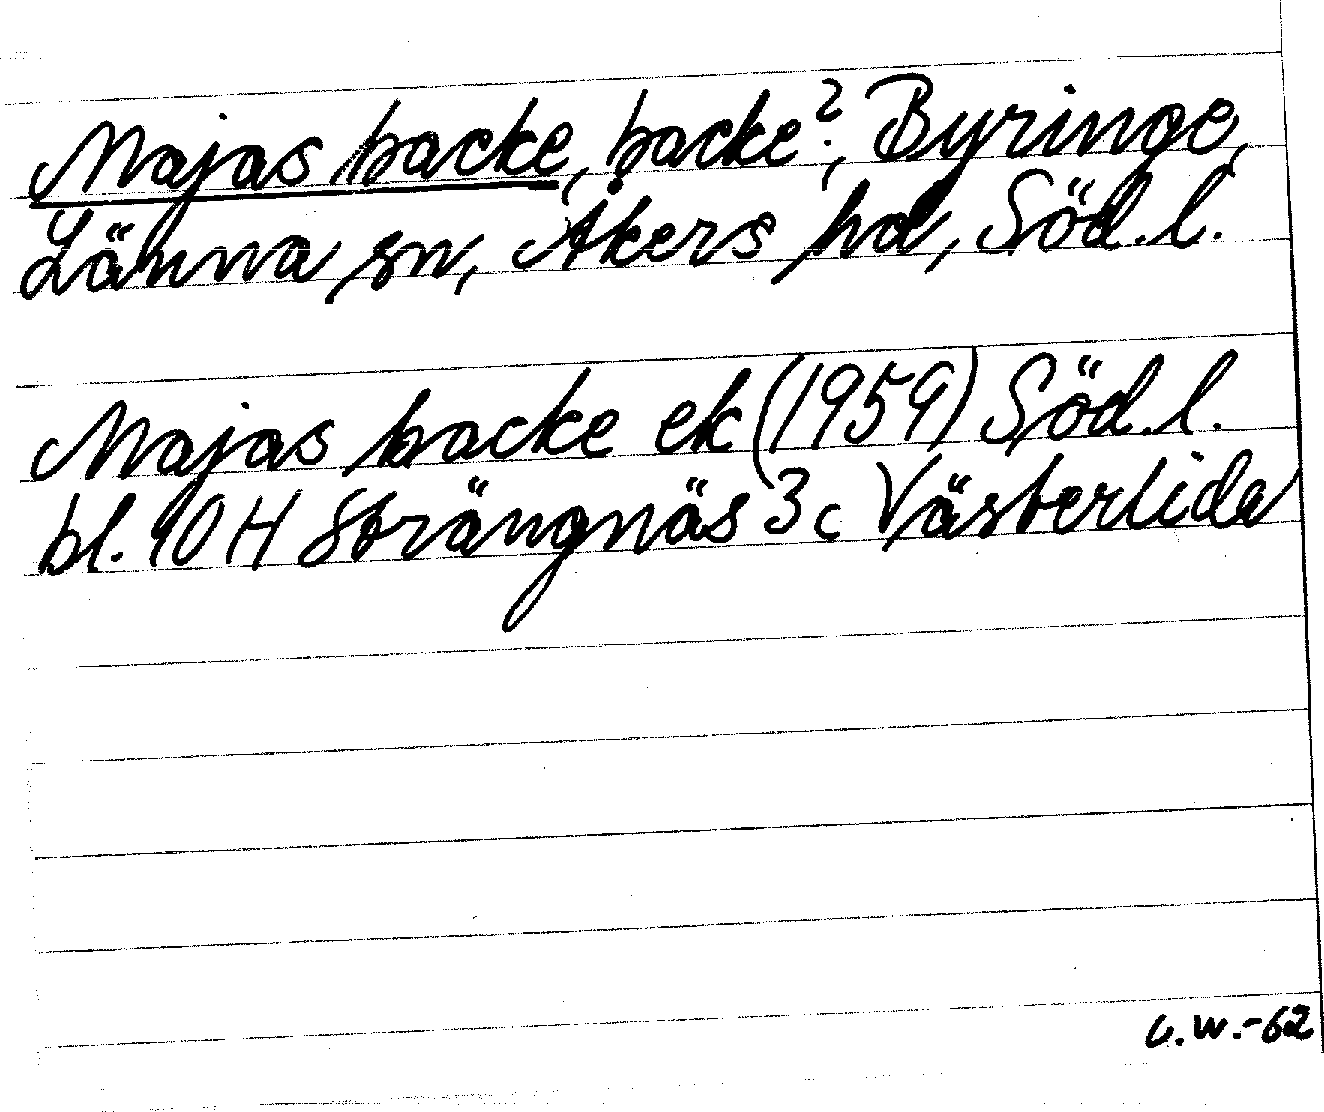 Majas backe, backe?, Byringe,
Länna sn, Åkers hd, Söd.l.
Majas backe ek (1959) Söd.l.
bl. 10 H Strängnäs 3 c Västerlida
U.W.-62